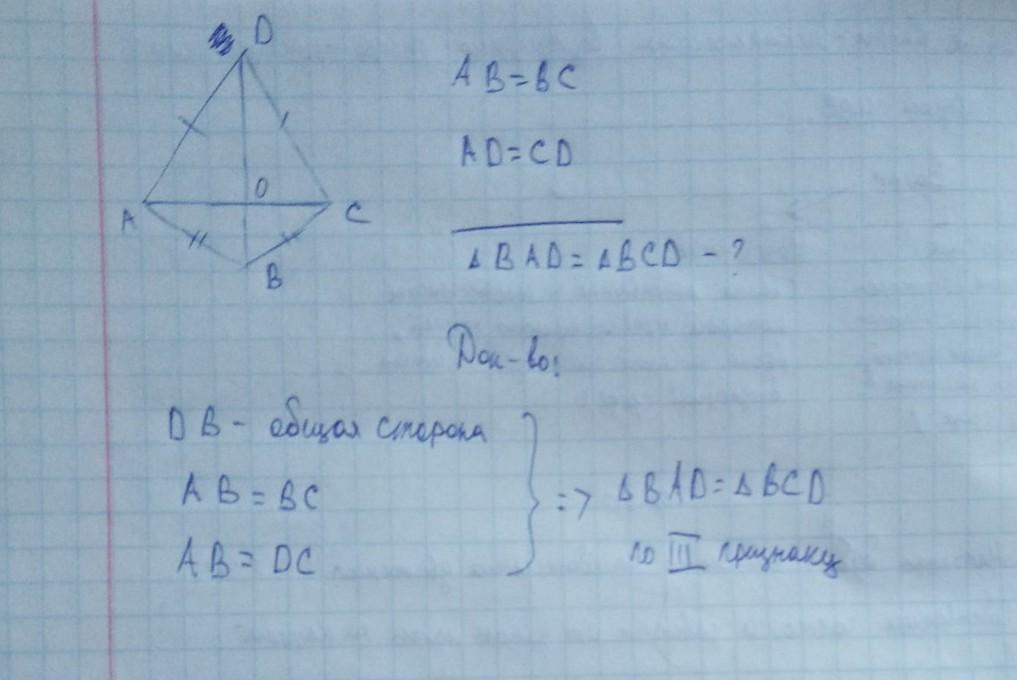 D
O
A
C
B
AB=BC
AD=CD
△BAD=△BCD-?
Док-во:
DB - общая сторона
AB=BC
AB=DC
=> △BAD=△BCD
по III признаку